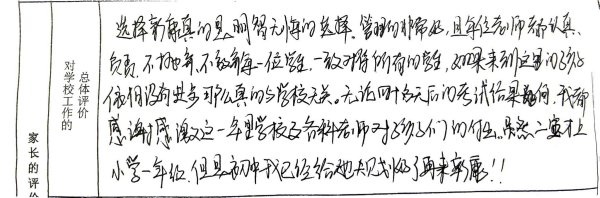 选择新康真的是明智无悔的选择。管理的非常好,且每位老师都认真、
负责,不抛弃、不放弃每一位学生,一致对待所有的学生,如果来到这里的孩子
他们没有进步那么真的与学校无关。无论四十天后的考试结果如何,我都
感谢感激这一年里学校及各科老师对孩子们的付出。虽然二宝才上
小学一年级,但是初中我已经给她规划好了再来新康!!
总体评价
对学校工作的
家长的评价